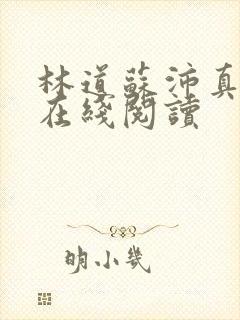 林道蘇沛真
在綫閱讀
明小幾